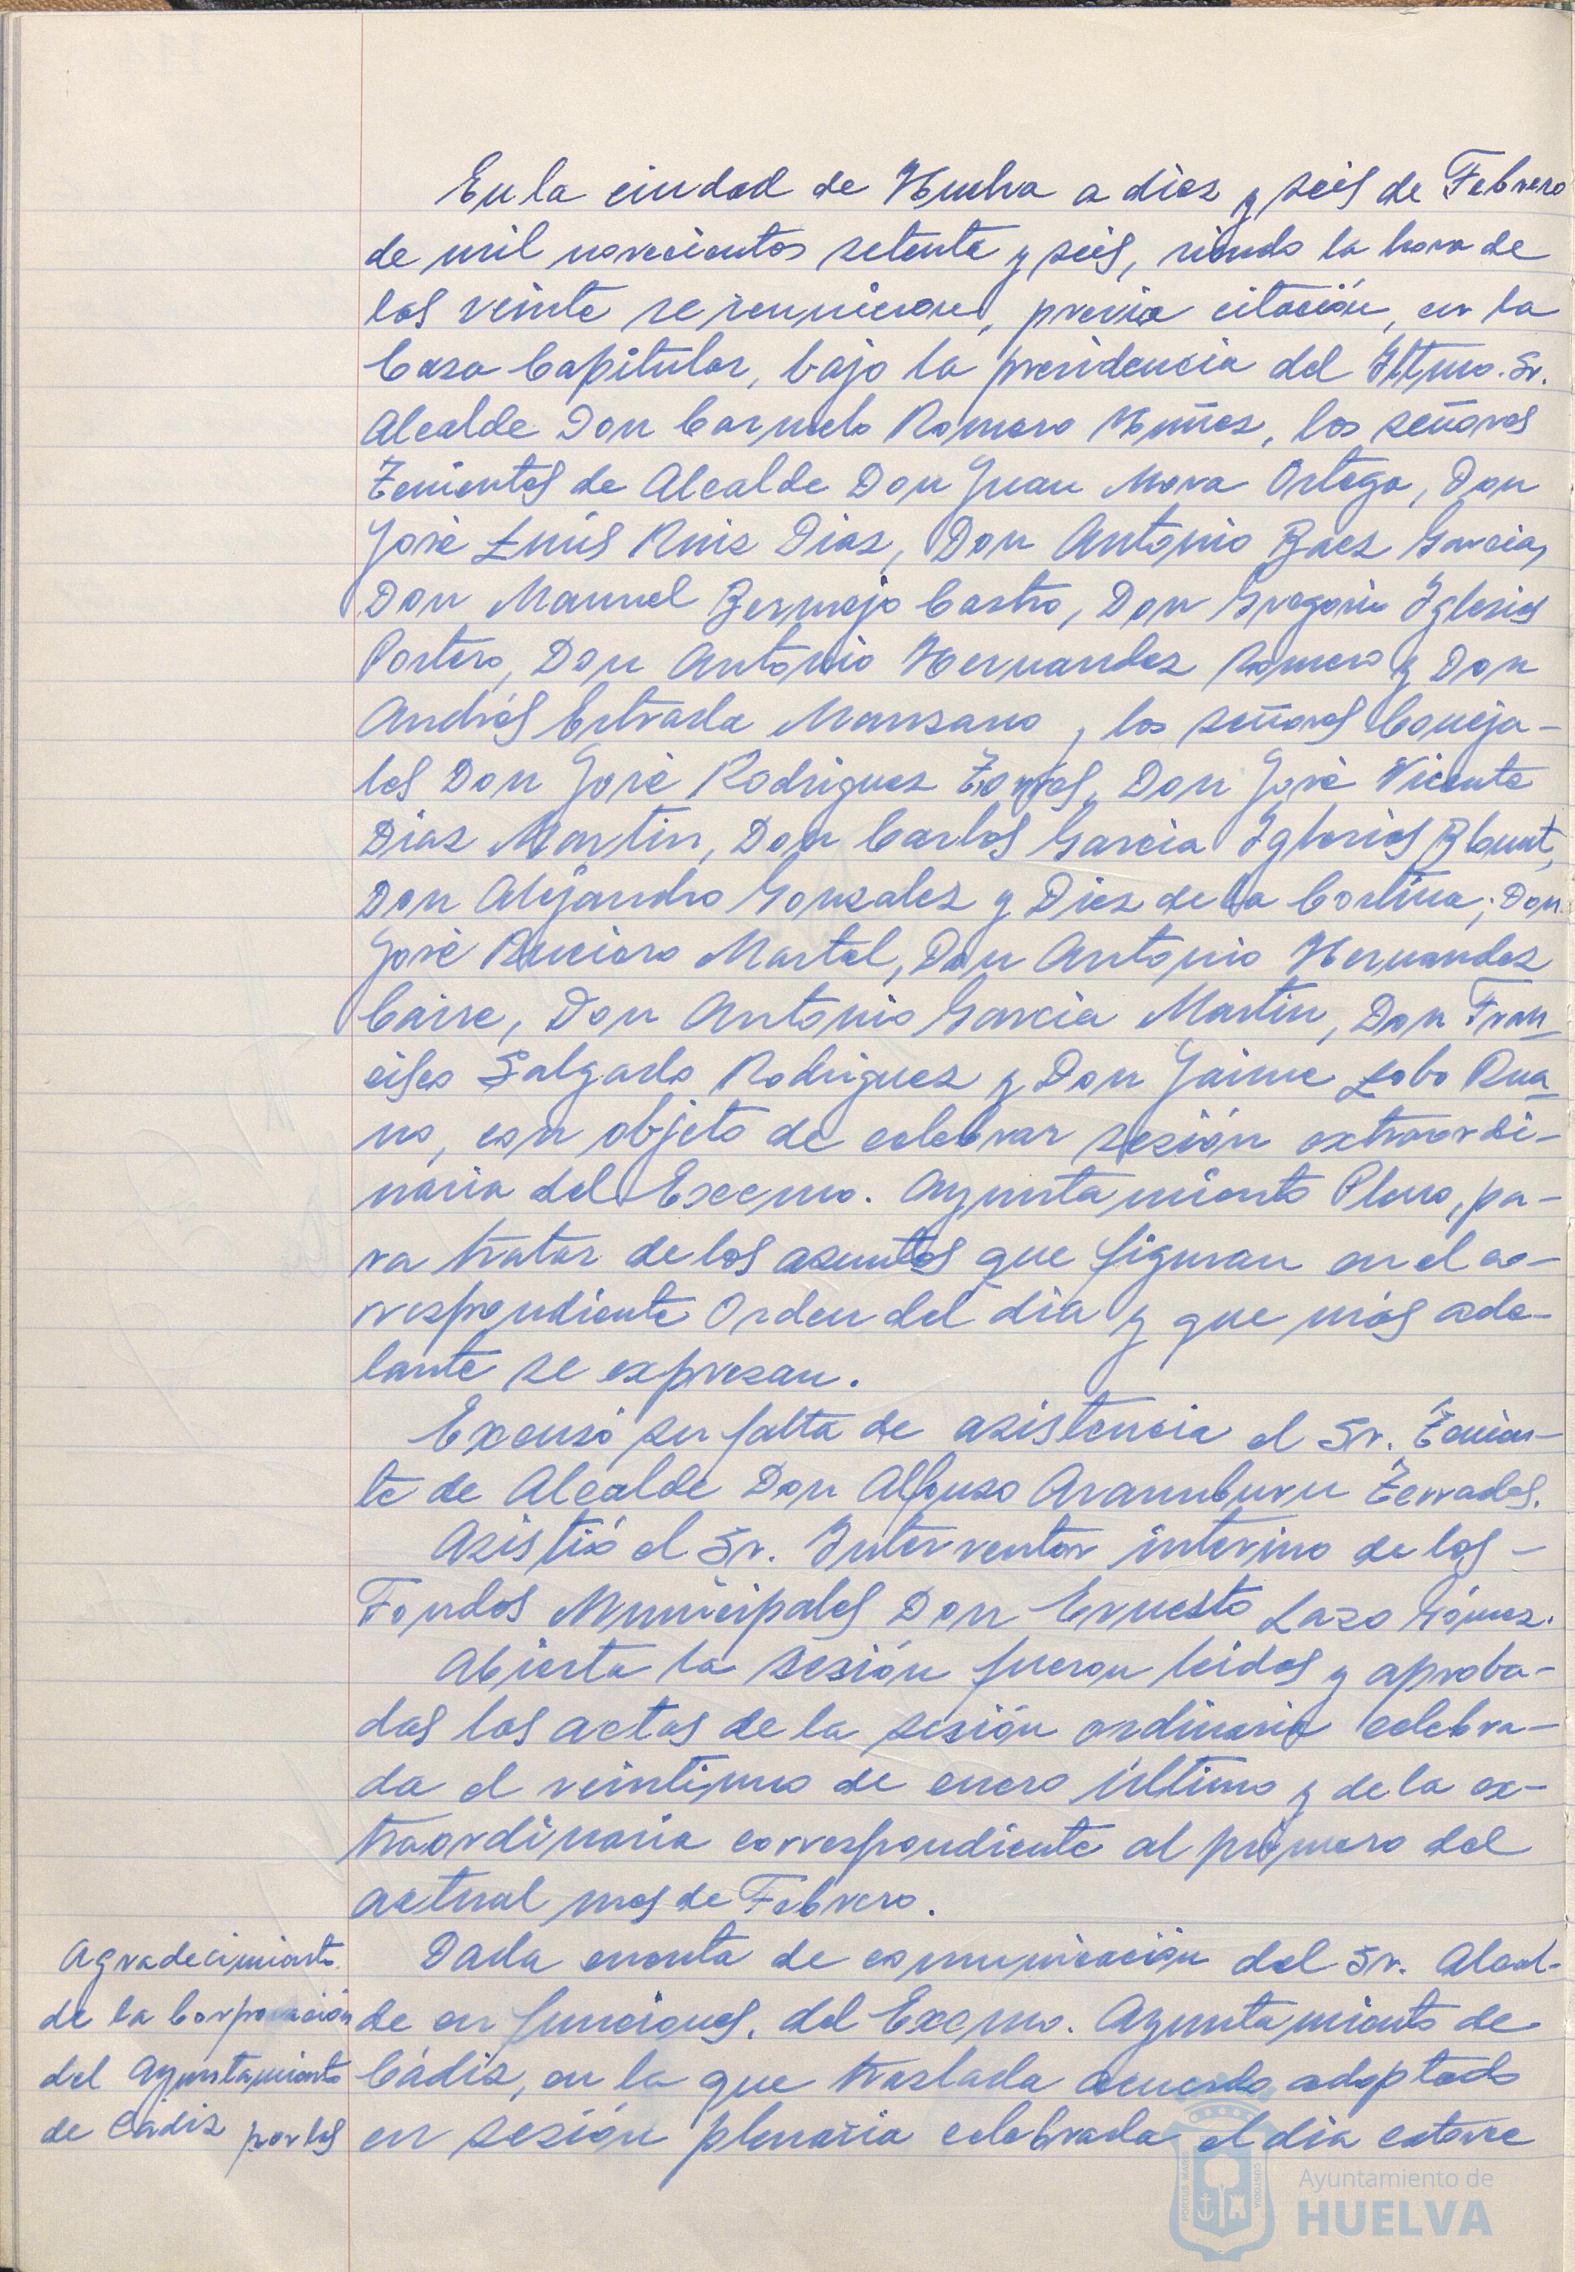 En la ciudad de Huelva a diez y seis de Febrero
de mil novecientos setenta y seis, siendo la hora de
las veinte se reunieron, previa citación, en la
Casa Capitular, bajo la presidencia del Iltmo. Sr.
Alcalde Don Carmelo Romero Nuñez, los señores
Tenientes de Alcalde Don Juan Mora Ortega, Don
José Luis Ruiz Diaz, Don Antonio Baez Garcia,
Don Manuel Bermejo Castro, Don Gregorio Iglesias
Portero, Don Antonio Hernandez Romero y Don
Andrés Estrada Manzano, los señores Conceja-
les Don José Rodriguez Don José Vicente
Diaz Martin, Don Carlos Garcia Iglesias Blount,
Don Alejandro Gonzalez y Diez de la Cortina, Don
José Ruciero Martel, Don Antonio Hernandez
Don Antonio Garcia Martin, Don Fran-
cisco Salgado Rodriguez y Don Jaime Lobo Rua-
no, con objeto de celebrar sesión extraordi-
naria del Excmo. Ayuntamiento Pleno, pa-
ra tratar de los asuntos que figuran en el co-
rrespondiente Orden del día y que más ade-
lante se expresan.
Excusó su falta de asistencia el Sr. Tenien-
te de Alcalde Don Alfonso Aramburu Terrades.
Asistió el Sr. Interventor interino de los -
Fondos Municipales Don Ernesto Lazo Gómez.
Abierta la sesión fueron leidas y aproba-
das las actas de la sesión ordinaria celebra-
da el veintiuno de enero último y de la ex-
traordinaria correspondiente al primero del
actual mes de Febrero.
Agradecimiento
de la Corporación
del Ayuntamiento
de Cádiz por las
Dada cuenta de comunicación del Sr. Alcal-
de en funciones, del Excmo. Ayuntamiento de
Cádiz, en la que traslada acuerdo adoptado
en sesión plenaria celebrada el día catorce
PORTUS MARIS
CUSTODIA
Ayuntamiento de
HUELVA